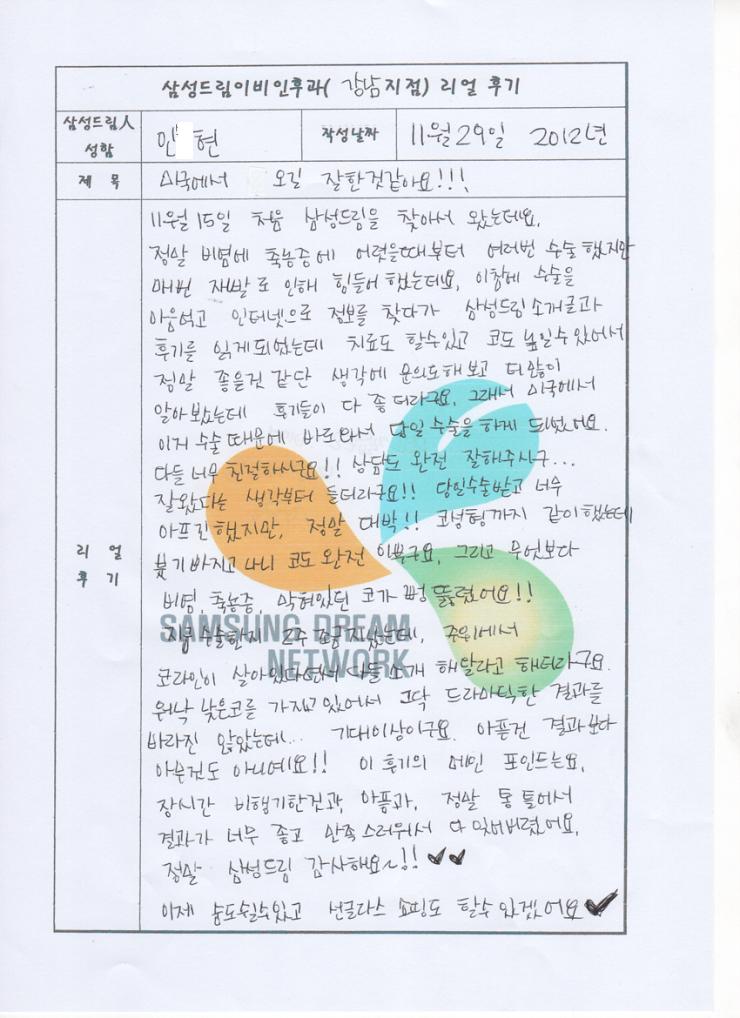 삼성드림이비인후과( 강남지점) 리얼 후기
삼성드림人 성함
민 현
작성날짜
11월 29일 2012년
제 목
미국에서 오길 잘한것같아요!!!
리 얼 후 기
11월 15일 처음 삼성드림을 찾아서 왔는데요.
정말 비염에 축농증에 어렸을때부터 여러번 수술했지만
매번 재발로 인해 힘들어했는데요, 이참에 수술을
마음먹고 인터넷으로 정보를 찾다가 삼성드림소개글과
후기를 읽게되었는데 치료도 할수있고 코도 높일수있어서
정말 좋을것 같단 생각에 문의도해보고 더 많이
알아보았는데 후기들이 다 좋더라구요. 그래서 미국에서
이거 수술때문에 바로와서 당일수술을하게 되었어요.
다들 너무 친절하시구요!! 상담도 완전 잘해주시구...
잘왔다는 생각부터 들더라구요!! 당일수술받고 너무
아프긴했지만, 정말 대박!! 코성형까지 같이했는데
붓기 빠지고나니 코도 완전 이쁘구요, 그리고 무엇보다
비염, 축농증, 막혀있던 코가 뻥 뚫렸어요!!
지금 수술한지 2주 조금지났는데, 주위에서
코라인이 살아있다면서 다들 소개 해달라고 해더라구요.
워낙 낮은코를 가지고있어서 그닥 드라마틱한 결과를
바라진 않았는데... 기대이상이구요. 아픈건 결과보다
아무것도 아니예요!! 이 후기의 메인 포인트는요,
장시간 비행기한것과, 아픔과, 정말 통틀어서
결과가 너무 좋고 만족스러워서 다 잊어버렸어요,
정말 삼성드림 감사해요~!! ✔✔
이제 숨도쉴수있고 선글라스 쇼핑도 할수있겠어요✔
SAMSUNG DREAM
NETWORK